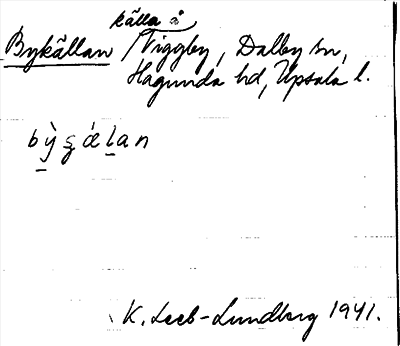 källa å
Bykällan / Viggby, Dalby sn,
Hagunda hd, Upsala l.
bỳʂǽlan
K. Leeb-Lundberg 1941.